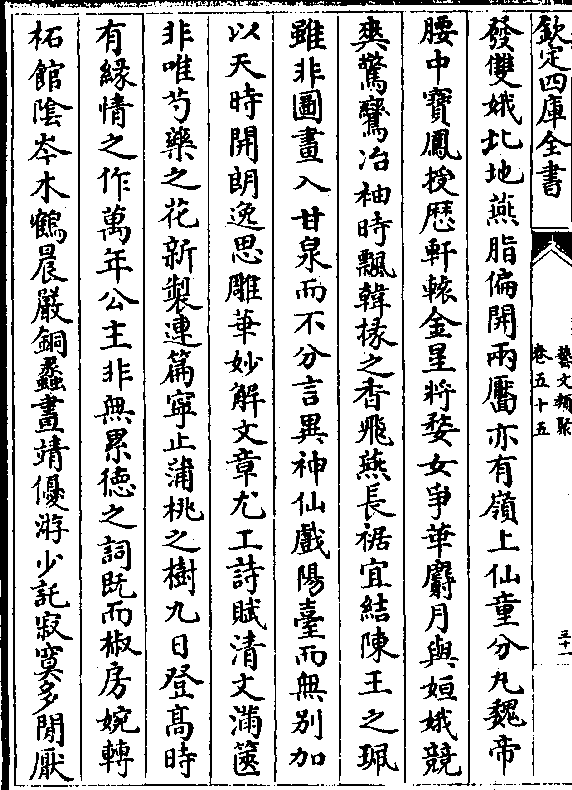 欽定四庫全書
藝文類聚
卷五十五
三十一
發雙娥北地燕脂偏開兩靨亦有嶺上仙童分丸魏帝
腰中寶鳳授厯軒轅金星將婺女爭華麝月與姮娥競
爽驚鸞冶袖時飄韓掾之香飛燕長裾宜結陳王之珮
雖非圖畫入甘泉而不分言異神仙戲陽臺而無別加
以天時開朗逸思雕華妙解文章尤工詩賦清文滿篋
非唯芍藥之花新製連篇寧止蒲桃之樹九日登髙時
有縁情之作萬年公主非無累徳之詞既而椒房婉轉
柘館陰岑木鶴晨嚴銅蠡晝靖優游少託寂寞多閒厭